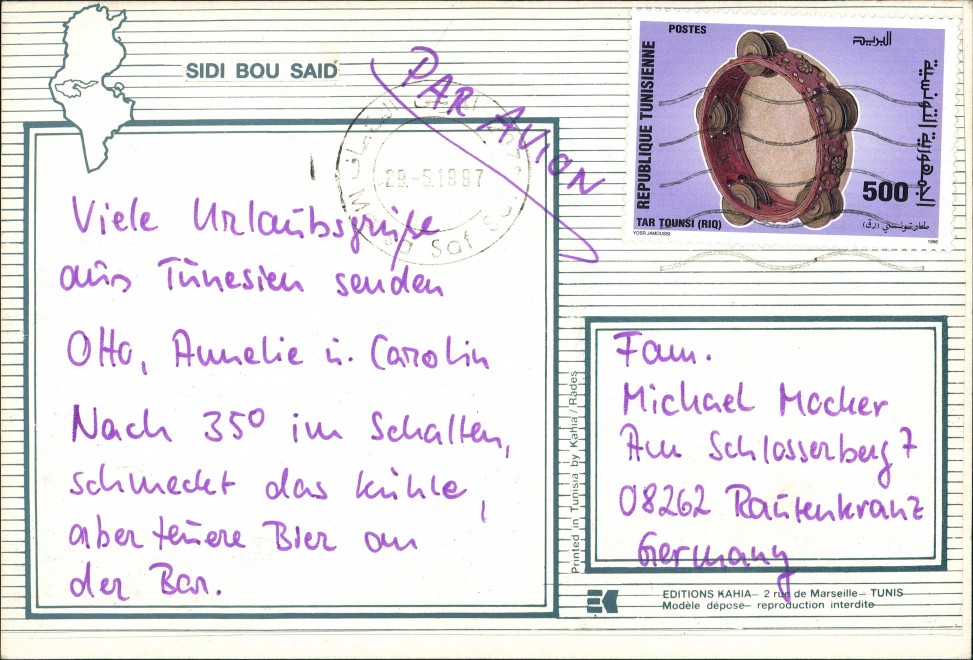 SIDI BOU SAID
PAR AVION
29.-5.1997
POSTES
البريد
REPUBLIQUE TUNISIENNE
الجمهورية التونسية
500
TAR TOUNSI (RIQ)
طار تونسي (رق)
YOSR JAMOUSSI
1996
Viele Urlaubsgrüße
aus Tunesien senden
Otto, Annelie u. Carolin
Nach 35° im Schatten,
schmeckt das kühle,
aber teuere Bier an
der Bar.
Printed in Tunisia by Kahia / Rades
Fam.
Michael Mocker
Am Schlosserberg 7
08262 Rautenkranz
Germany
EK
EDITIONS KAHIA – 2 rue de Marseille – TUNIS
Modèle déposé – reproduction interdite